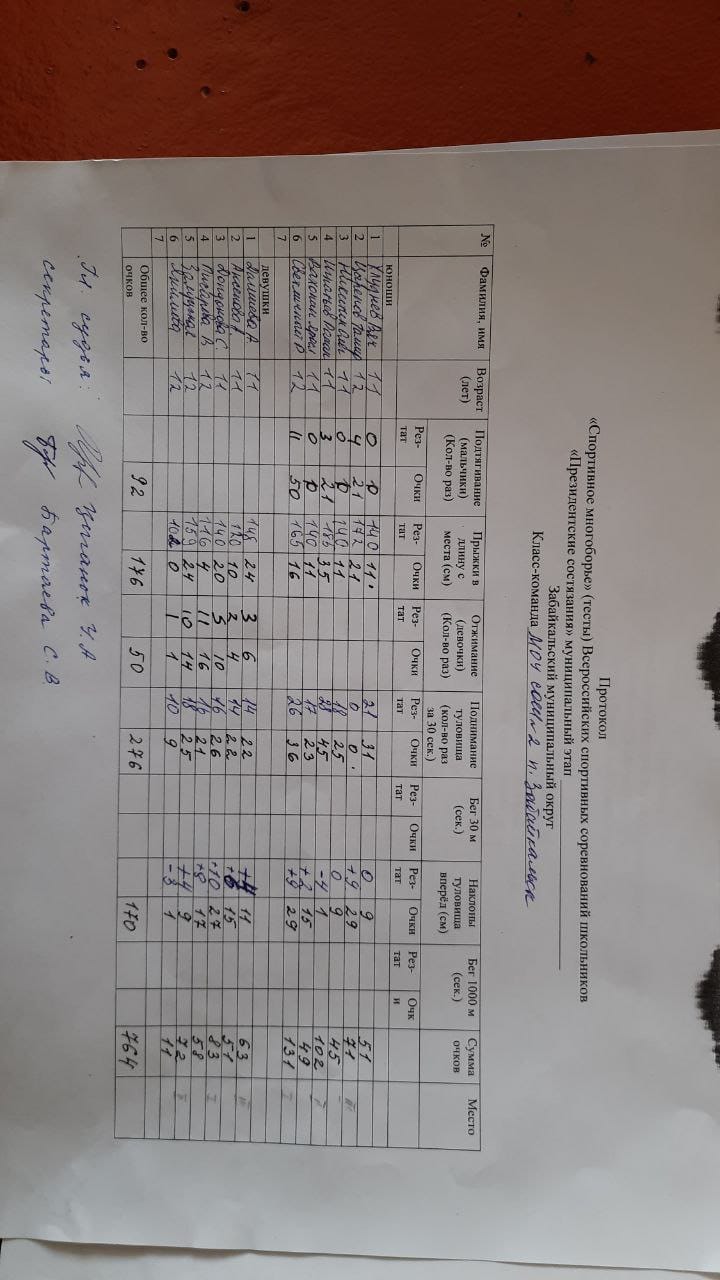 Протокол
«Спортивное многоборье» (тесты) Всероссийских спортивных соревнований школьников
«Президентские состязания» муниципальный этап
Забайкальский муниципальный округ
Класс-команда МОУ СОШ№2 п. Забайкальск
№ Фамилия, имя Возраст (лет) Подтягивание (мальчики) (Кол-во раз) Прыжки в длину с места (см) Отжимание (девочки) (Кол-во раз) Поднимание туловища (кол-во раз за 30 сек.) Бег 30 м (сек.) Наклоны туловища вперёд (см) Бег 1000 м (сек.) Сумма очков Место
Рез-тат Очки Рез-тат Очки Рез-тат Очки Рез-тат Очки Рез-тат Очки Рез-тат Очки Рез-тат Очки
юноши
1 11 0 0 140 11 21 31 0 9 51
2 12 4 21 172 21 0 0 +9 29 71 III
3 Никитин 11 0 0 140 11 18 25 0 9 45
4 11 3 21 186 35 45 -4 1 102 II
5 11 0 0 140 11 17 23 15 49
6 Р 12 11 50 165 16 26 36 +9 29 131 I
7
девушки
1 А 11 148 24 3 6 14 22 11 63 III
2 11 120 10 2 4 14 22 15 51
3 С 11 140 20 5 10 16 26 +10 27 83 I
4 В 12 116 4 11 16 16 21 +8 17 58
5 12 159 24 10 14 18 25 +4 9 72 II
6 12 102 0 1 1 10 9 -3 1 11
7
Общее кол-во очков 92 176 50 276 170 764
Гл. судья: Цыганок У. А
секретарь: Бартаева С. В